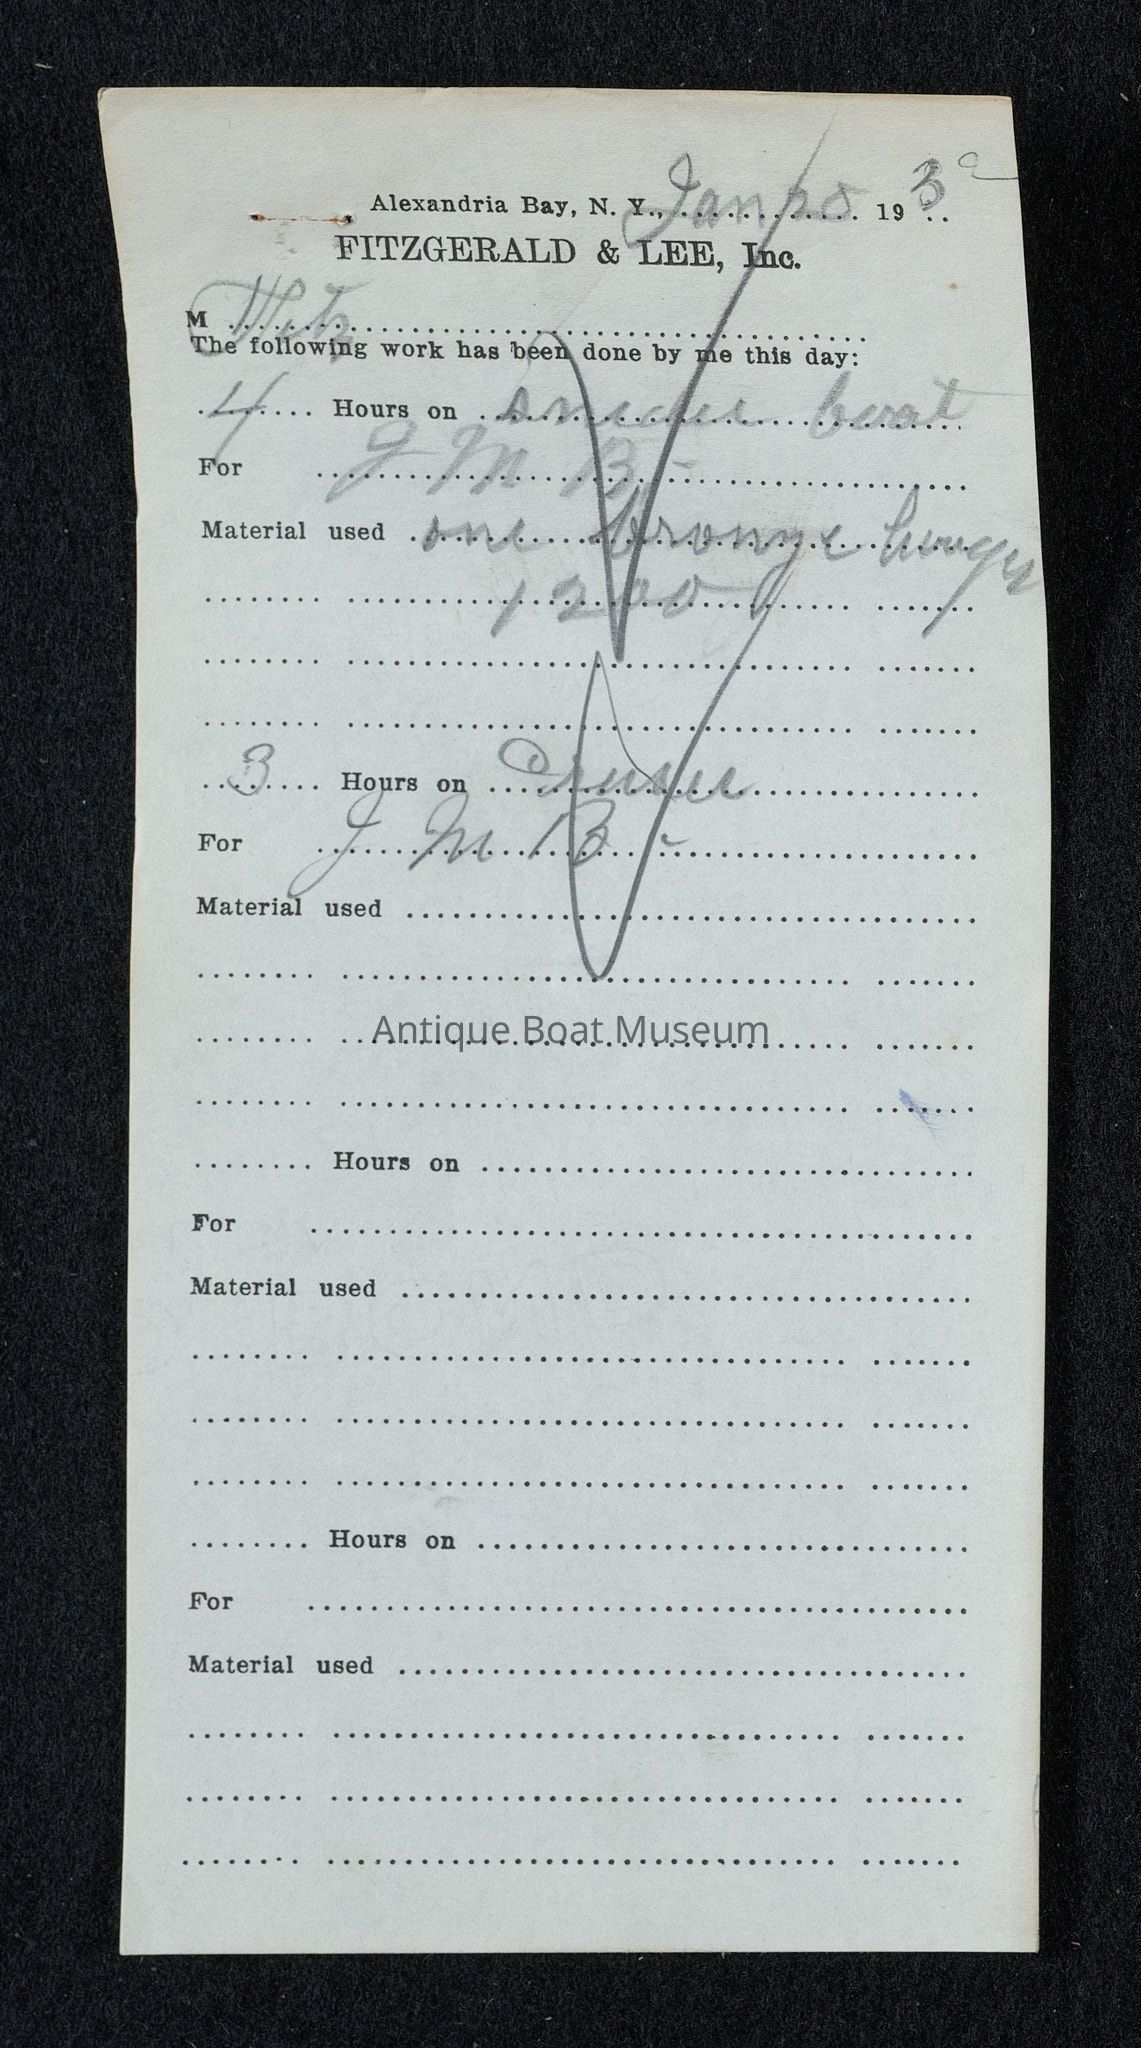 Alexandria Bay, N. Y., Jan 193
FITZGERALD & LEE, Inc.
M Fitz
The following work has been done by me this day:
4 Hours on boat
For J M B -
Material used one bronze
1200
3 Hours on
For J M B -
Material used
Antique Boat Museum
Hours on
For
Material used
Hours on
For
Material used